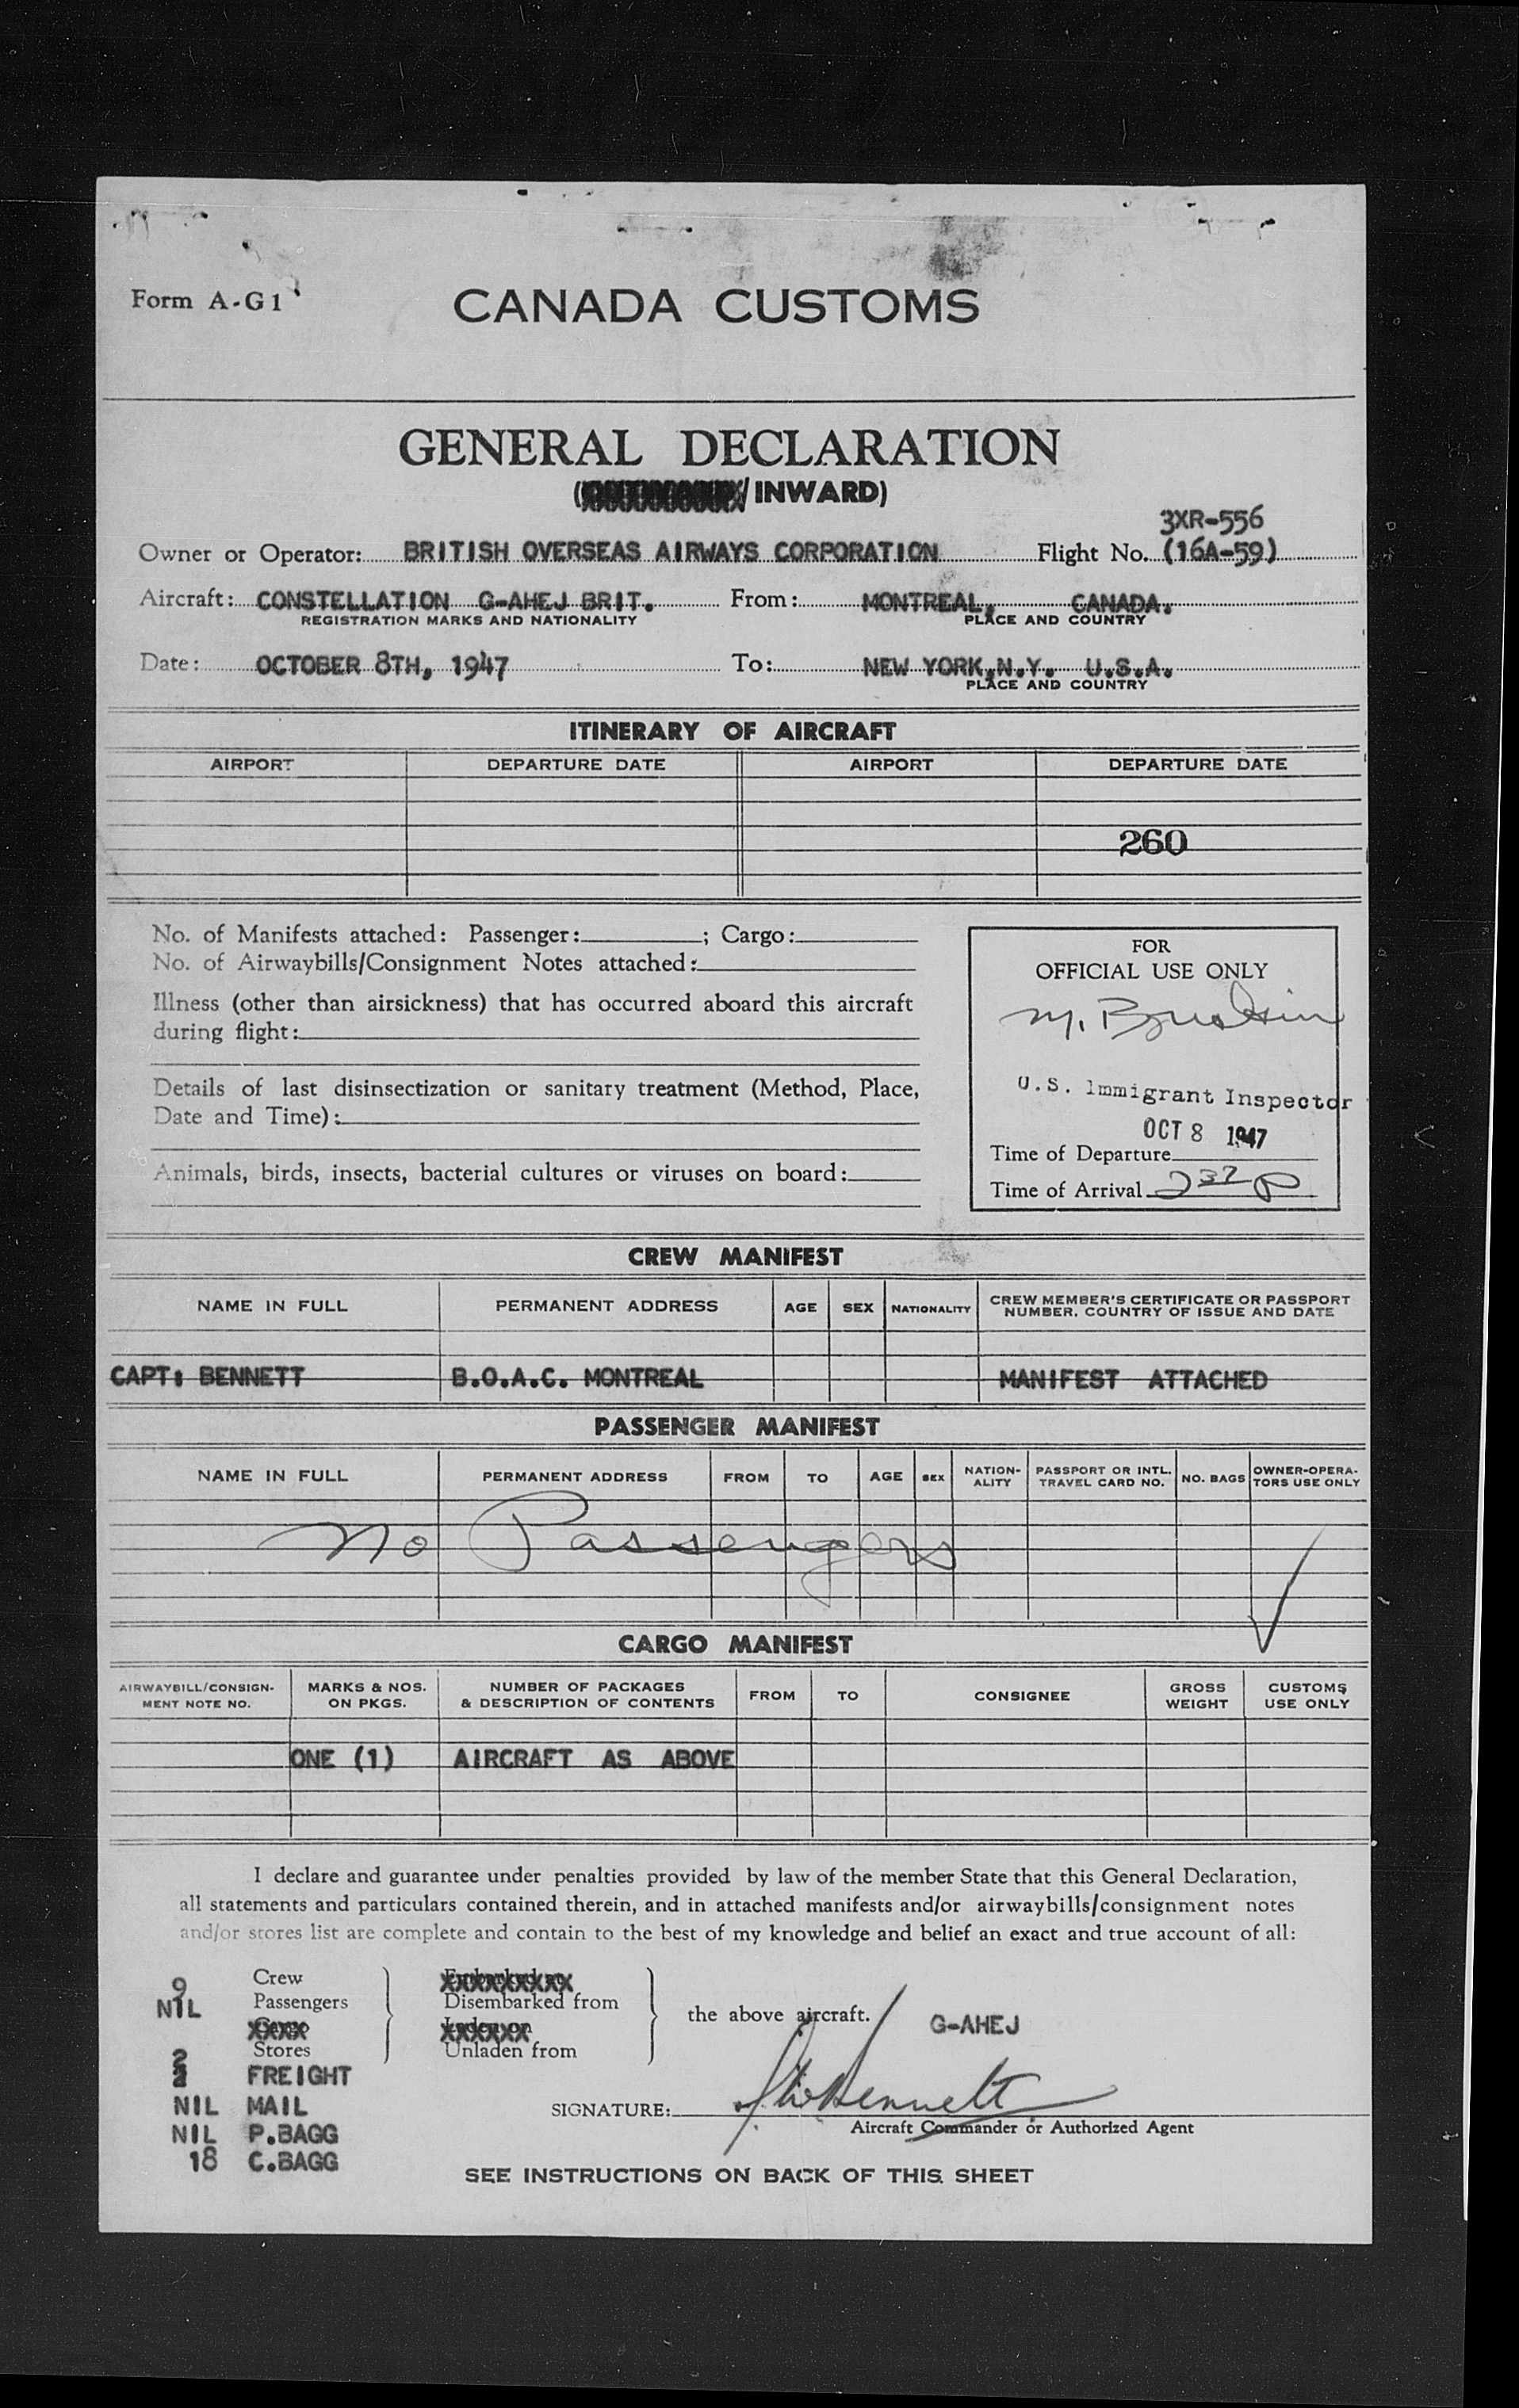 Form A-G1
CANADA CUSTOMS
GENERAL DECLARATION
(/INWARD)
3XR-556
Owner or Operator: BRITISH OVERSEAS AIRWAYS CORPORATION Flight No. (16A-59)
Aircraft: CONSTELLATION G-AHEJ BRIT. From: MONTREAL, CANADA.
REGISTRATION MARKS AND NATIONALITY PLACE AND COUNTRY
Date: OCTOBER 8TH, 1947 To: NEW YORK,N.Y. U.S.A.
PLACE AND COUNTRY
ITINERARY OF AIRCRAFT
AIRPORT DEPARTURE DATE AIRPORT DEPARTURE DATE
260
No. of Manifests attached: Passenger: ; Cargo:
No. of Airwaybills/Consignment Notes attached:
Illness (other than airsickness) that has occurred aboard this aircraft
during flight:
Details of last disinsectization or sanitary treatment (Method, Place,
Date and Time):
Animals, birds, insects, bacterial cultures or viruses on board:
FOR
OFFICIAL USE ONLY
M.
U.S. Immigrant Inspector
OCT 8 1947
Time of Departure
Time of Arrival 2 37 P
CREW MANIFEST
NAME IN FULL PERMANENT ADDRESS AGE SEX NATIONALITY CREW MEMBER'S CERTIFICATE OR PASSPORT
NUMBER, COUNTRY OF ISSUE AND DATE
CAPT: BENNETT B.O.A.C. MONTREAL MANIFEST ATTACHED
PASSENGER MANIFEST
NAME IN FULL PERMANENT ADDRESS FROM TO AGE SEX NATION-
ALITY PASSPORT OR INTL.
TRAVEL CARD NO. NO. BAGS OWNER-OPERA-
TORS USE ONLY
No Passengers
CARGO MANIFEST
AIRWAYBILL/CONSIGN-
MENT NOTE NO. MARKS & NOS.
ON PKGS. NUMBER OF PACKAGES
& DESCRIPTION OF CONTENTS FROM TO CONSIGNEE GROSS
WEIGHT CUSTOMS
USE ONLY
ONE (1) AIRCRAFT AS ABOVE
I declare and guarantee under penalties provided by law of the member State that this General Declaration,
all statements and particulars contained therein, and in attached manifests and/or airwaybills/consignment notes
and/or stores list are complete and contain to the best of my knowledge and belief an exact and true account of all:
9 Crew
NIL Passengers Disembarked from the above aircraft. G-AHEJ
Stores Unladen from
2 FREIGHT
NIL MAIL
NIL P.BAGG
18 C.BAGG
SIGNATURE: Bennett
Aircraft Commander or Authorized Agent
SEE INSTRUCTIONS ON BACK OF THIS SHEET